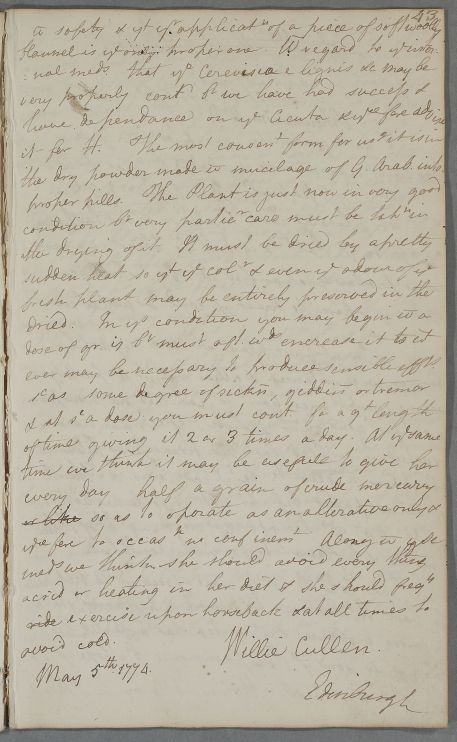 43
w safety & yt ye applicatn of a piece of soft woolly
flannel is ye only proper one. W regard to ye inter-
-nal meds. that ye Cerevisia e lignis &c may be
very properly contd bt we have had success &
have dependance on ye Cicuta & yre fore advise
it for H. The most convent form for usg it is in
the dry powder made w mucilage of G. Arab. into
proper pills. The Plant is just now in very good
condition bt very particr care must be takn in
the drying of it. It must be dried by a pretty
sudden heat so yt ye colr & even ye odour of ye
fresh plant may be entirely preserved in the
dried. In ys condition you may begin w a
dose of gr. is bt must aft wds encrease it to wt
ever may be necessary to produce sensible effts
sc as some degree of sickns, giddins or tremor
& at sc a dose you must cont. for a gt length
of time giving it 2 or 3 times a day. At ye same
time we think it may be usefule to give her
every day half a grain of crude mercury
or like so as to operate as an alterative only &
yre fore to occasn no confinemt Along w yse
meds we think she should avoid every thing
acrid or heating in her diet & she should freqly
ride exercise upon horseback & at all times to
avoid cold.
Willie Cullen.
May 5th. 1774.
Edinburgh